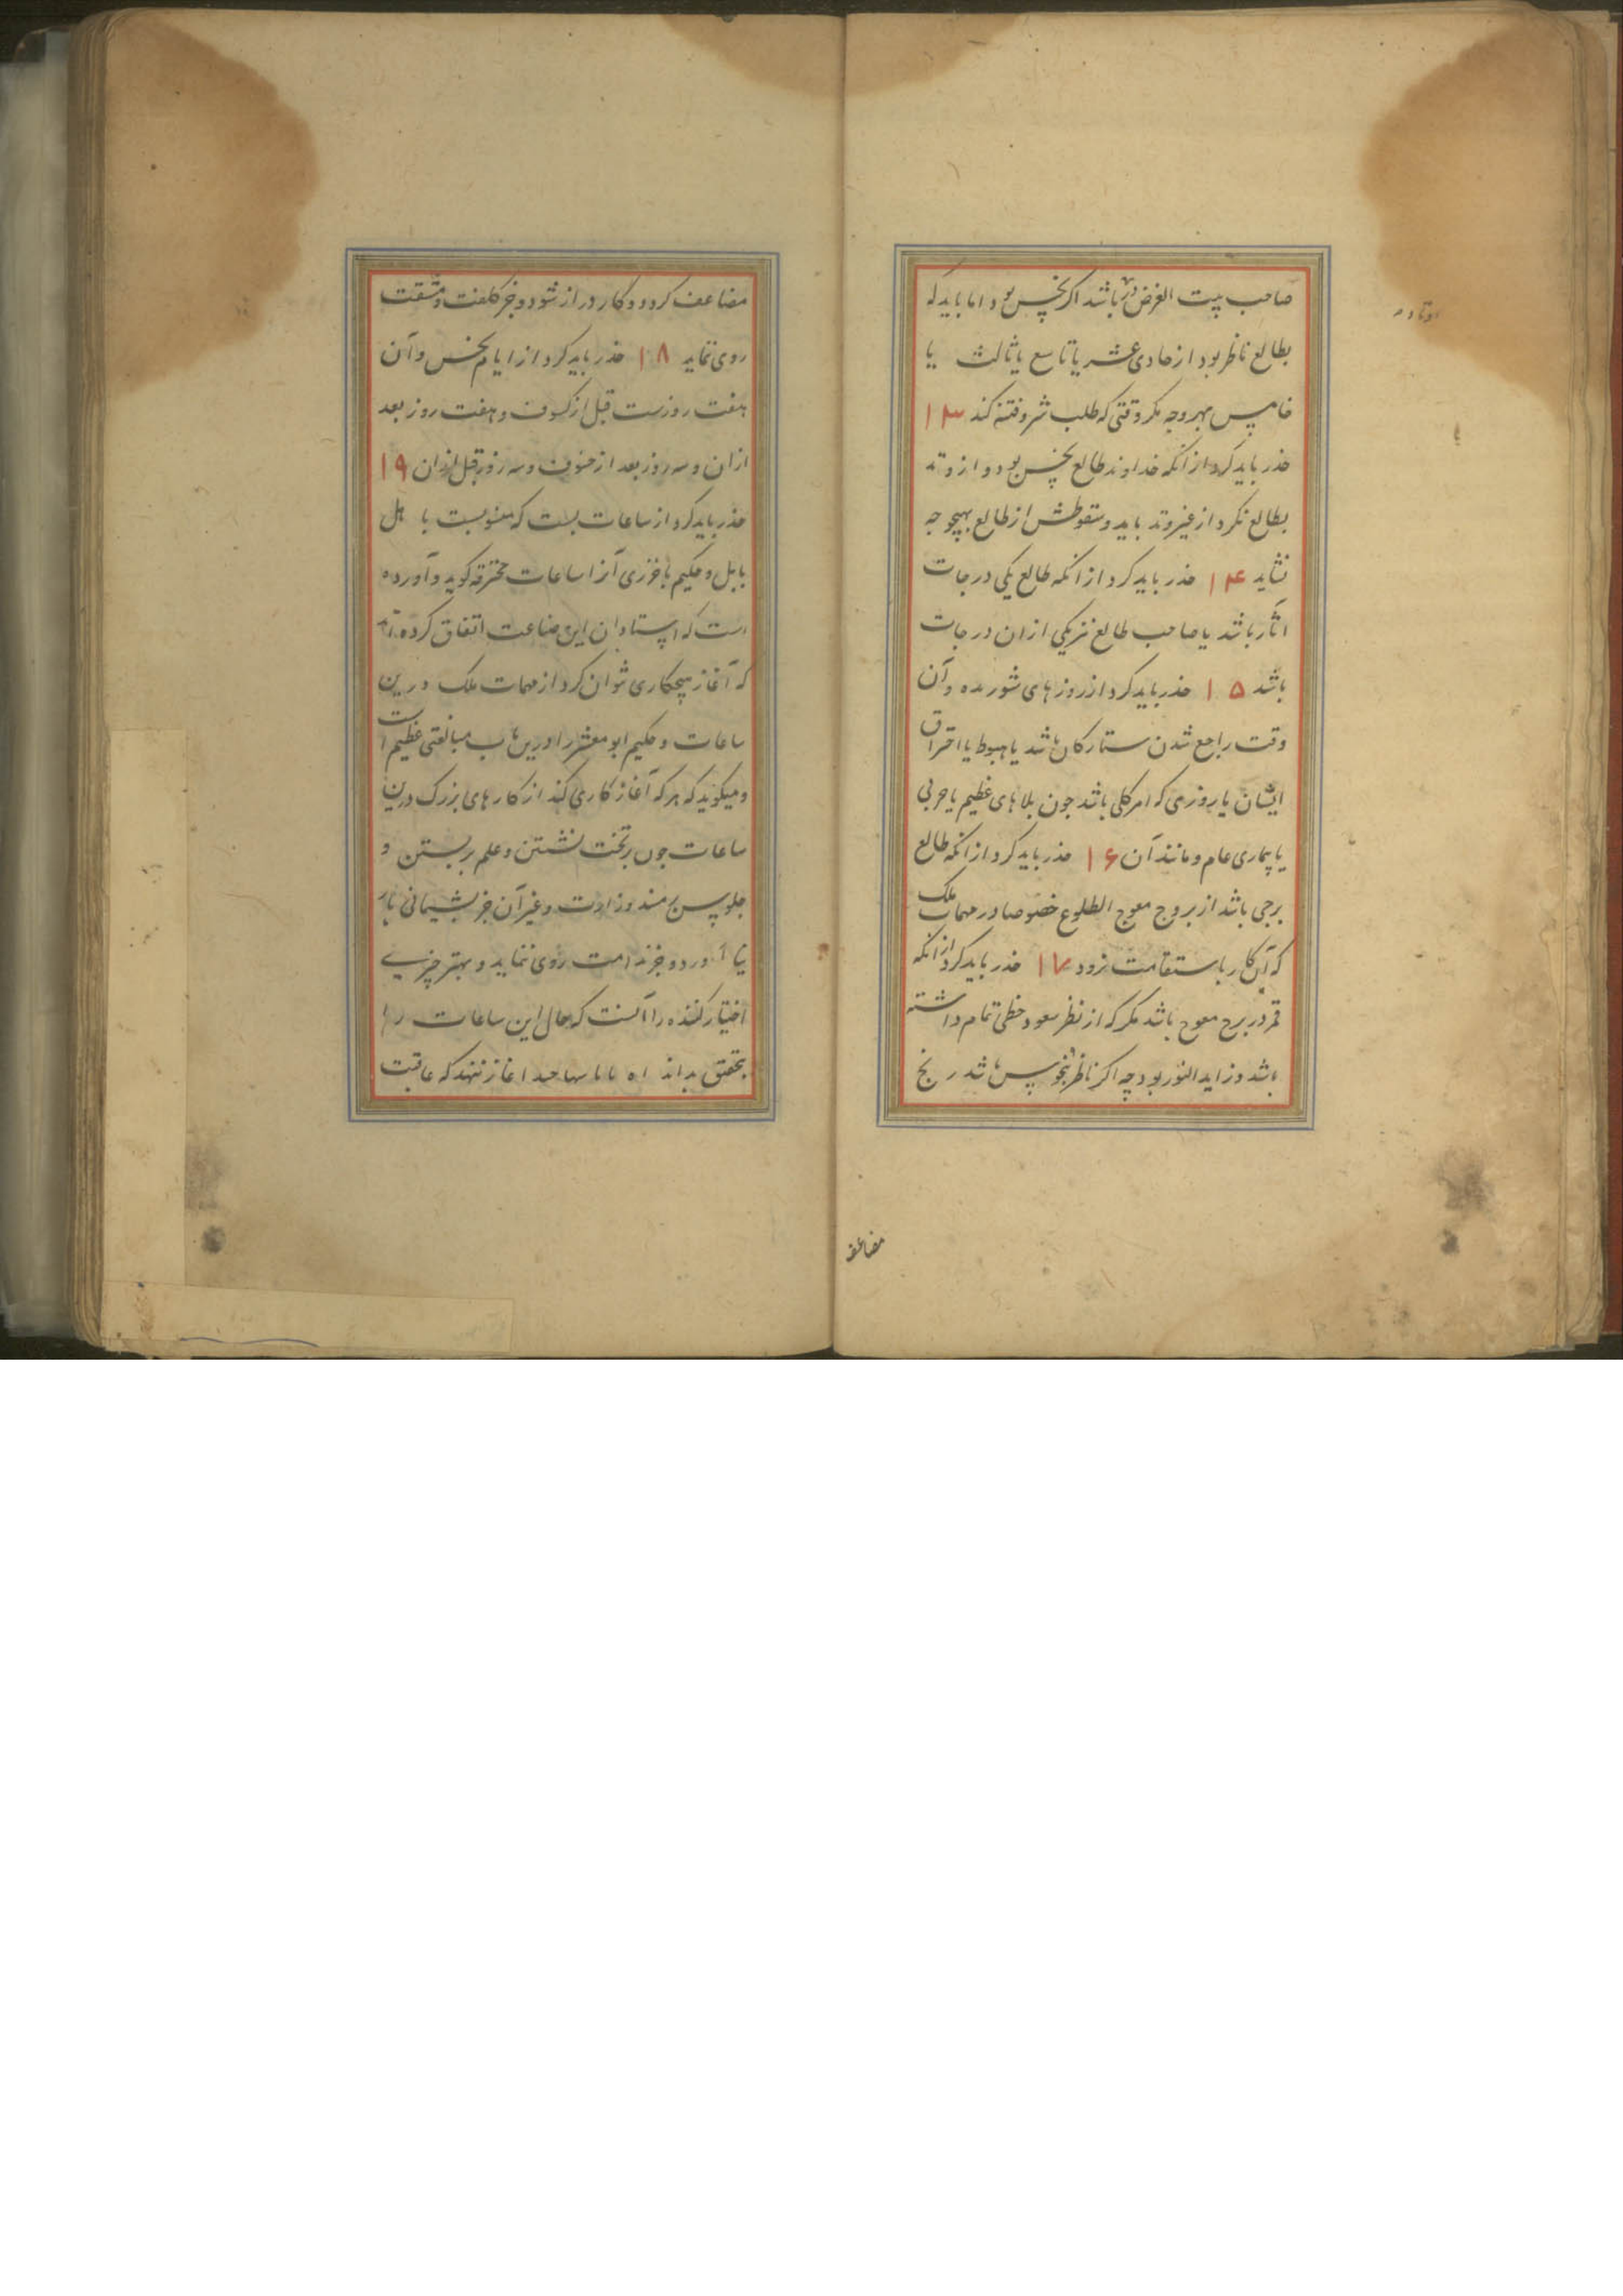 صاحب بیت الغرض در باشد اکر نحس بود اما باید که
بطالع ناظر بود از حادی عشر یا تاسع یا ثالث یا
خامس بهر وجه مکر وقتی که طلب شر و فتنه کند ۱۳
حذر باید کرد از انکه خداوند طالع نحس بود و از وتد
بطالع نکرد از غیر وتد باید و سقوطش از طالع بهیچ وجه
نشاید ۱۴ حذر باید کرد از انکه طالع یکی درجات
آثار باشد یا صاحب طالع نیز یکی ازان درجات
باشد ۱۵ حذر باید کرد از روزهای شوریده و آن
وقت راجع شدن ستارکان باشد یا هبوط یا احتراق
ایشان یا روزی که امر کلی باشد جون بلاهای عظیم یا حربی
یا بیماری عام و مانند آن ۱۶ حذر باید کرد از انکه طالع
برجی باشد از بروج معوج الطلوع خصوصا در مهمات ملک
که آن کار باستقامت نرود ۱۷ حذر باید کرد از انکه
قمر در برج معوج باشد مکر که از نظر سعود حظی تمام داشته
باشد و زاید النور بود چه اکر ناظر بنحوس باشد رنج
مضاعف
مضاعف کردد و کار دراز شود و جز کلفت و مشقت
روی ننماید ۱۸ حذر باید کرد از ایام نحس و آن
هفت روزست قبل از کسوف و هفت روز بعد
ازان و سه روز بعد از خسوف و سه روز قبل ازان ۱۹
حذر باید کرد از ساعات بست که منسوبست با هل
بابل و حکیم باخرزی آنرا ساعات محترقه کوید و آورده
است که استادان این صناعت اتفاق کرده اند
که آغاز هیچکاری نتوان کرد از مهمات ملک درین
ساعات و حکیم ابو معشر را درین باب مبالغتی عظیم است
و میکوید که هر که آغاز کاری کند از کارهای بزرک درین
ساعات جون بر تخت نشستن و علم بر بستن و
جلوس بر مسند وزارت و غیر آن جز بشیمانی بار
نیاورد و جز ندامت روی ننماید و بهتر چیزی
اختیار کننده را آنست که حال این ساعات را
بتحقیق بداند آغاز ننهد که عاقبت